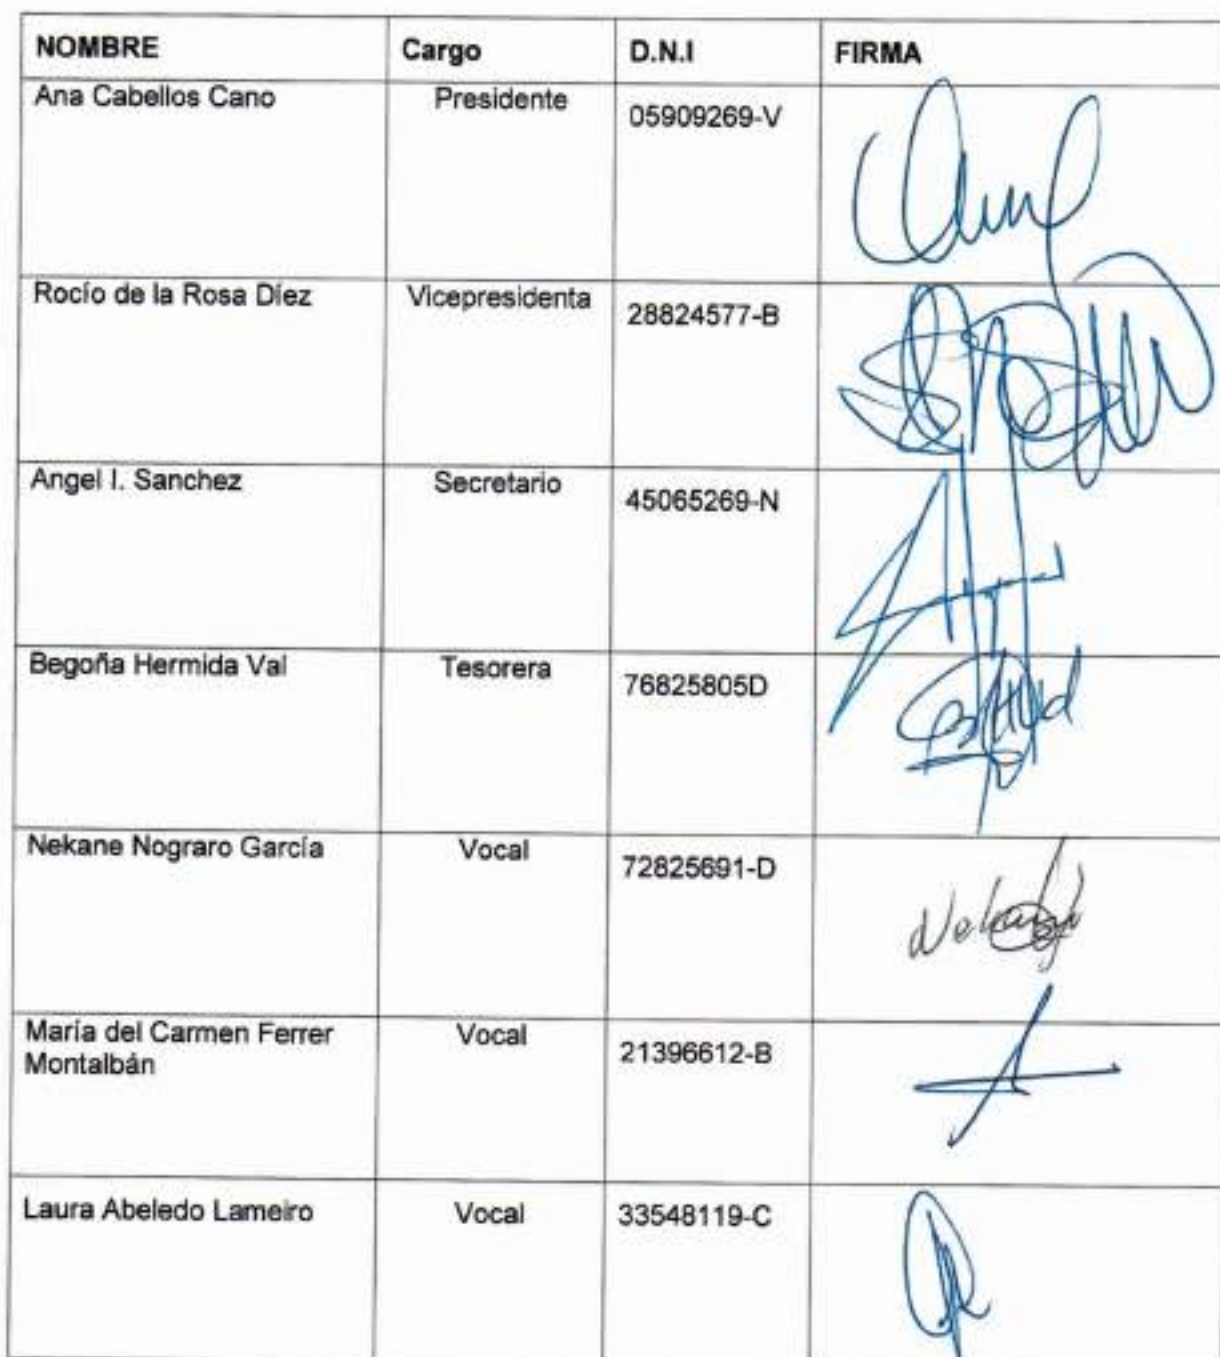 NOMBRE Cargo D.N.I FIRMA
Ana Cabellos Cano Presidente 05909269-V
Rocío de la Rosa Díez Vicepresidenta 28824577-B
Angel I. Sanchez Secretario 45065269-N
Begoña Hermida Val Tesorera 76825805D
Nekane Nograro García Vocal 72825691-D
María del Carmen Ferrer Vocal 21396612-B
Montalbán
Laura Abeledo Lameiro Vocal 33548119-C